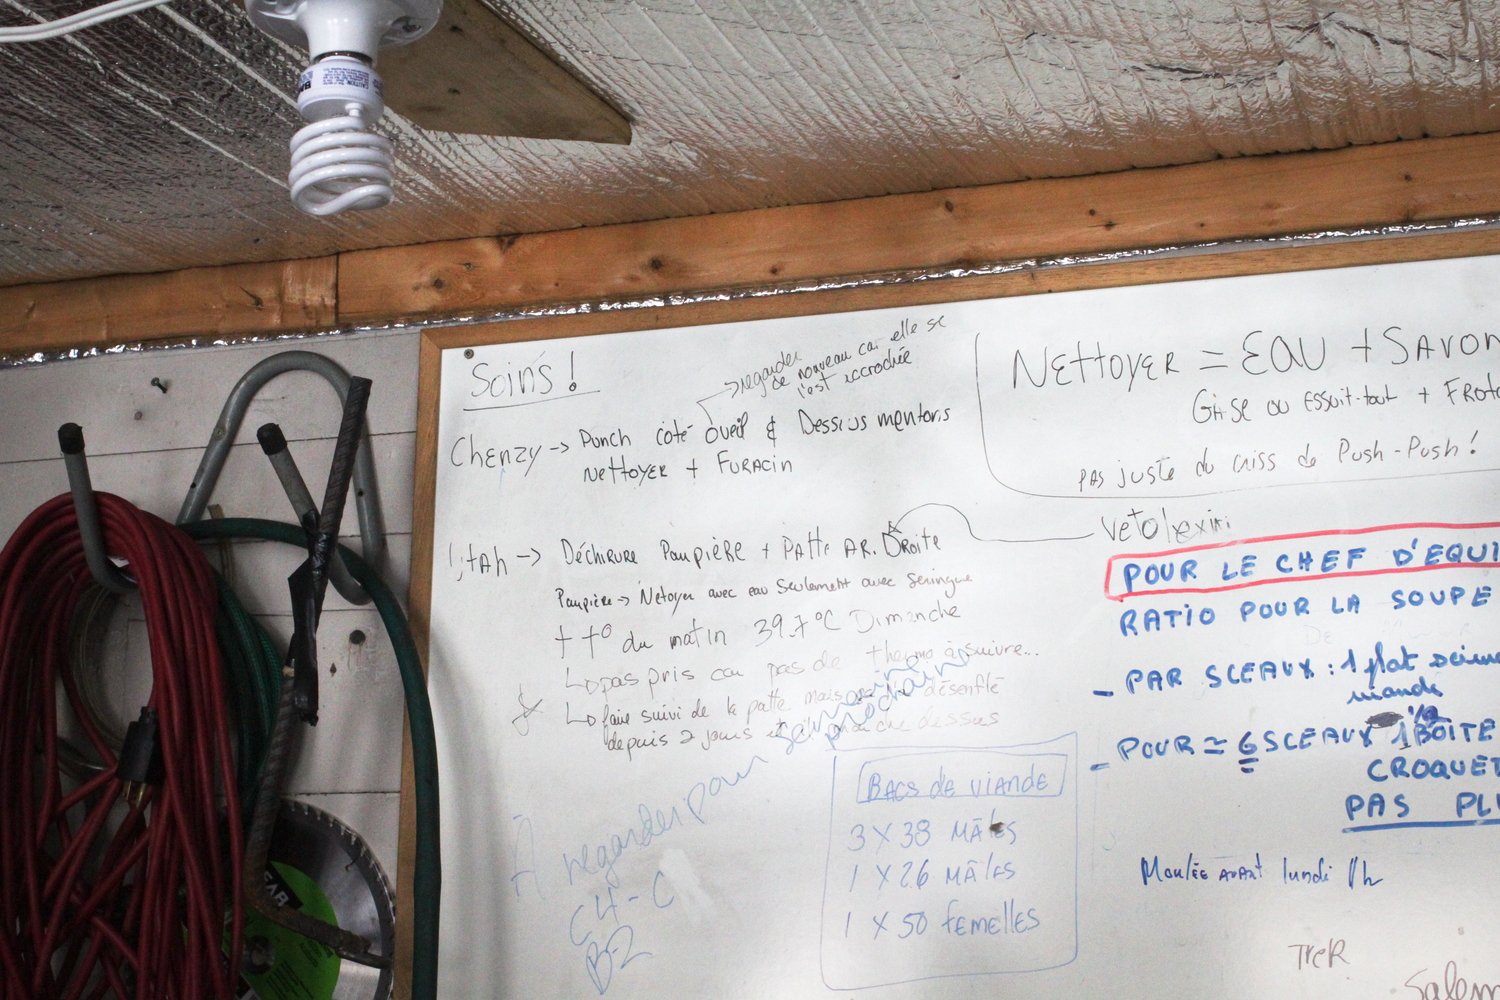 Soins!
→ regarder
de nouveau car elle se
l'est accrochée
Chenzy → Punch côté oueil & Dessus mentons
Nettoyer + Furacin
→ Déchirure Paupière + Patte AR. Droite
Paupière → Netoyer avec eau seulement avec seringue
t° du matin 39.7°C Dimanche
pas pris car pas de thermo à suivre...
faire suivi de la patte mais désenflé
depuis 2 jours et dessus
À regarder pour semaine prochaine
C4-C
B-2
Bacs de viande
3 X 38 Mâles
1 X 26 Mâles
1 X 50 femelles
Nettoyer = EAU + Savon
ou Essuit-tout + Frot
Pas juste du criss de Push-Push!
POUR LE CHEF D'EQUI
RATIO POUR LA SOUPE
- PAR SCEAUX : 1 plat
viande
1/2
- POUR ≃ 6 SCEAUX 1 BOITE
CROQUET
PAS PLU
Moulée avant lundi 11h
Trer
Salem